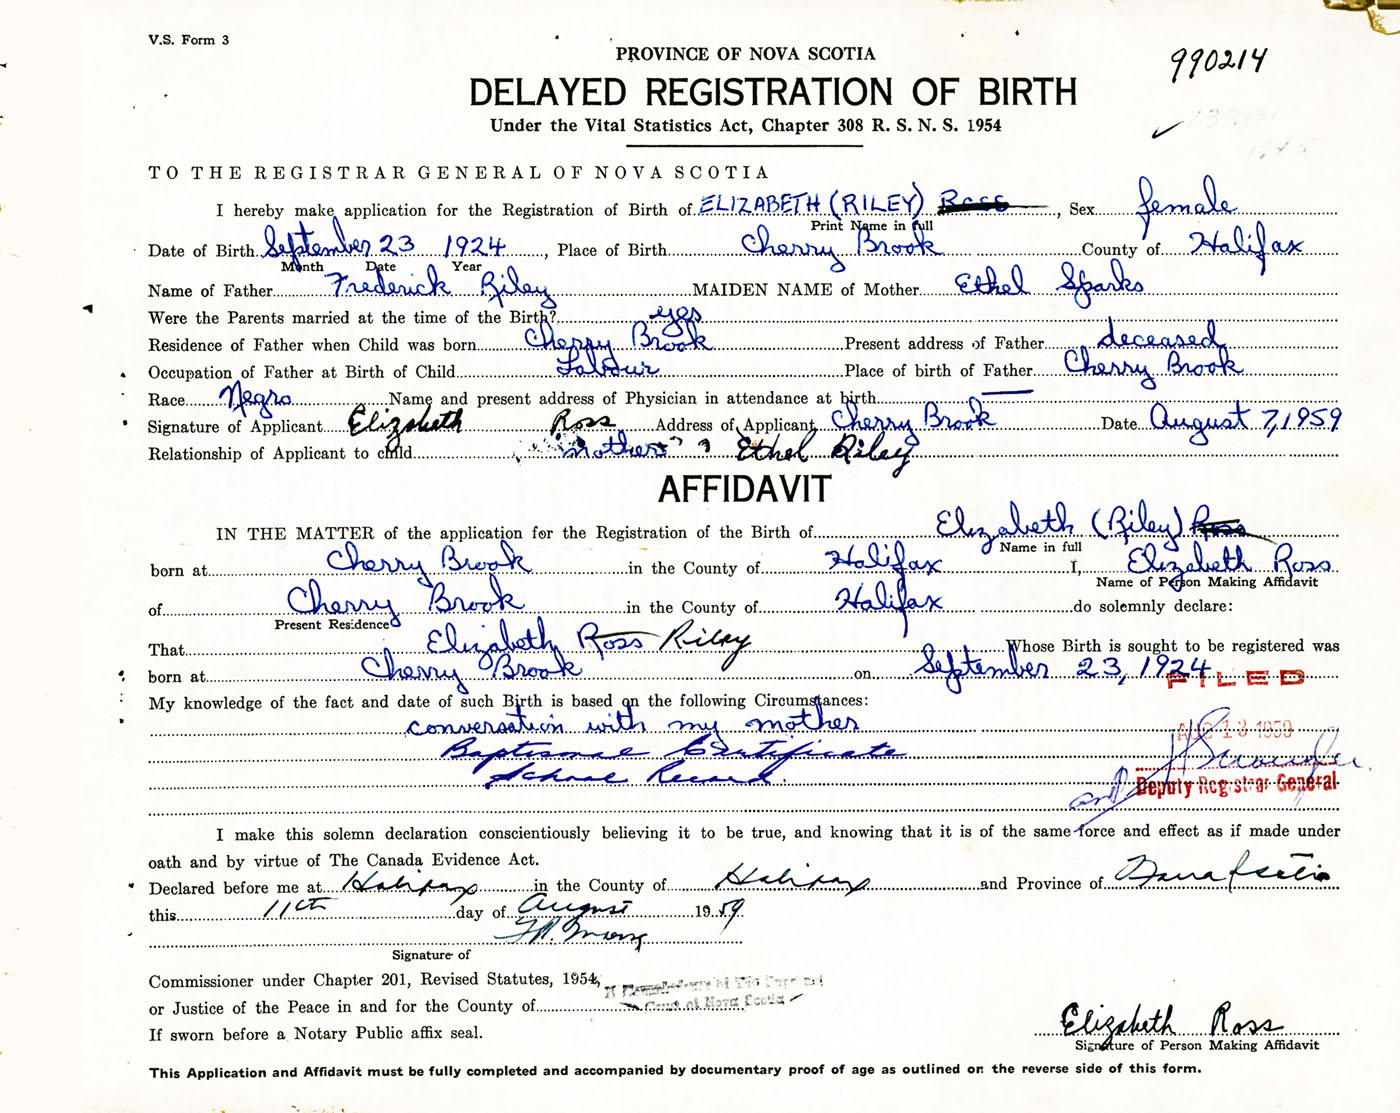 V.S. Form 3
PROVINCE OF NOVA SCOTIA
990214
DELAYED REGISTRATION OF BIRTH
Under the Vital Statistics Act, Chapter 308 R. S. N. S. 1954
TO THE REGISTRAR GENERAL OF NOVA SCOTIA
I hereby make application for the Registration of Birth of ELIZABETH (RILEY) Ross, Sex female
Print Name in full
Date of Birth September 23 1924, Place of Birth Cherry Brook County of Halifax
Month Date Year
Name of Father Frederick Riley MAIDEN NAME of Mother Ethel Sparks
Were the Parents married at the time of the Birth? yes
Residence of Father when Child was born Cherry Brook Present address of Father deceased
Occupation of Father at Birth of Child Labour Place of birth of Father Cherry Brook
Race Negro Name and present address of Physician in attendance at birth —
Signature of Applicant Elizabeth Ross Address of Applicant Cherry Brook Date August 7, 1959
Relationship of Applicant to child mother ? ? Ethel Riley
AFFIDAVIT
IN THE MATTER of the application for the Registration of the Birth of Elizabeth (Riley) Ross
Name in full
born at Cherry Brook in the County of Halifax I, Elizabeth Ross
Name of Person Making Affidavit
of Cherry Brook in the County of Halifax do solemnly declare:
Present Residence
That Elizabeth Ross Riley Whose Birth is sought to be registered was
born at Cherry Brook on September 23, 1924
FILED
My knowledge of the fact and date of such Birth is based on the following Circumstances:
conversation with my mother
AUG 13 1959
Baptismal Certificate
School Record.
Deputy Registrar General
I make this solemn declaration conscientiously believing it to be true, and knowing that it is of the same force and effect as if made under
oath and by virtue of The Canada Evidence Act.
Declared before me at Halifax in the County of Halifax and Province of Nova Scotia
this 11th day of August 1959
Signature of
Commissioner under Chapter 201, Revised Statutes, 1954,
or Justice of the Peace in and for the County of Court of Nova Scotia
If sworn before a Notary Public affix seal.
Elizabeth Ross
Signature of Person Making Affidavit
This Application and Affidavit must be fully completed and accompanied by documentary proof of age as outlined on the reverse side of this form.